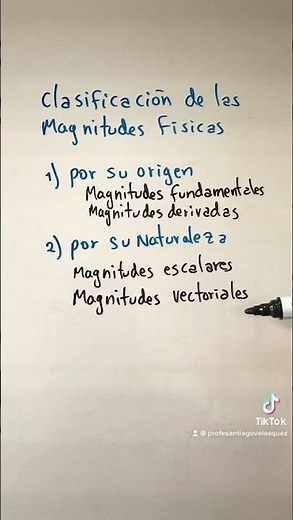 Clasificación de las
Magnitudes Físicas
1) por su origen
Magnitudes fundamentales
Magnitudes derivadas
2) por su Naturaleza
Magnitudes escalares
Magnitudes vectoriales
TikTok
@profesantiagovelasquez